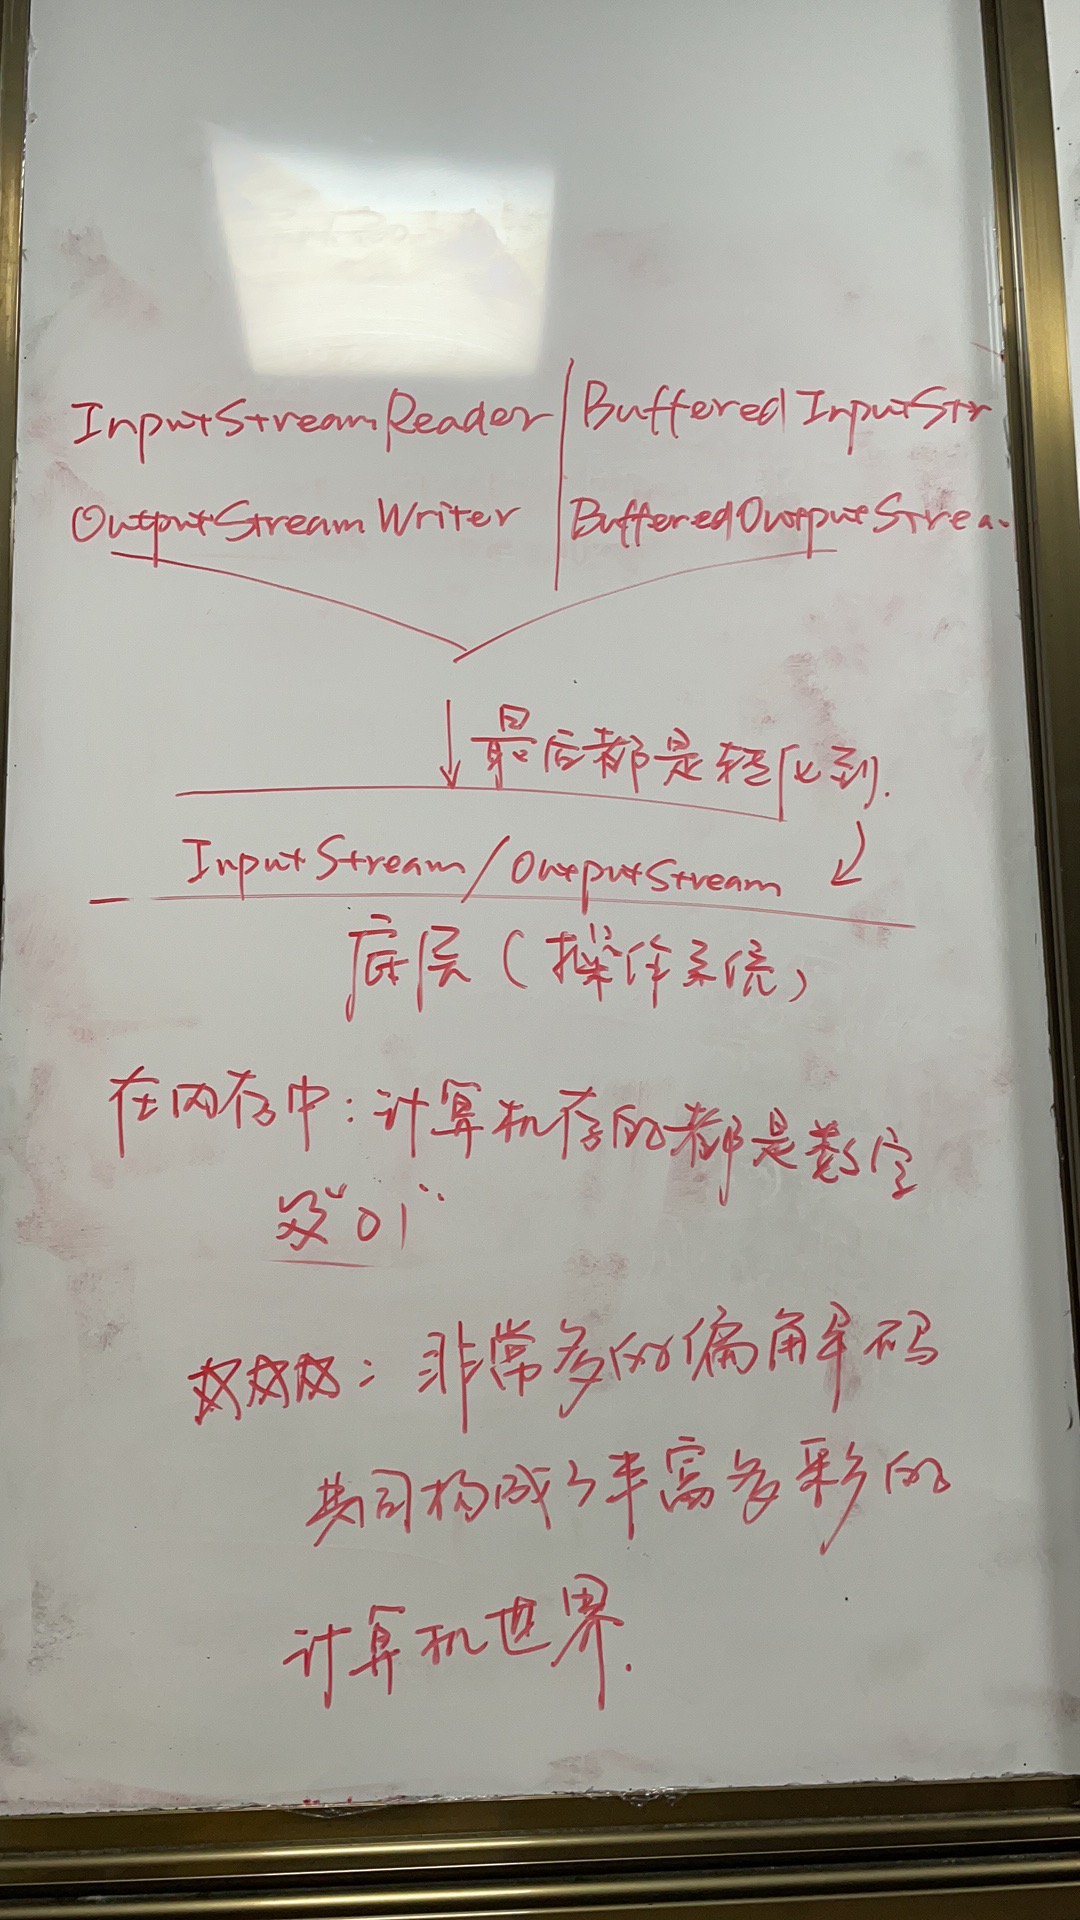 InputStreamReader | BufferedInputStr
OutputStreamWriter | BufferedOutputStrea
最后都是转化到.
InputStream/OutputStream
底层(操作系统)
在内存中:计算机存的都是数字
及"01"
非常多的编解码
共同构成了丰富多彩的
计算机世界.